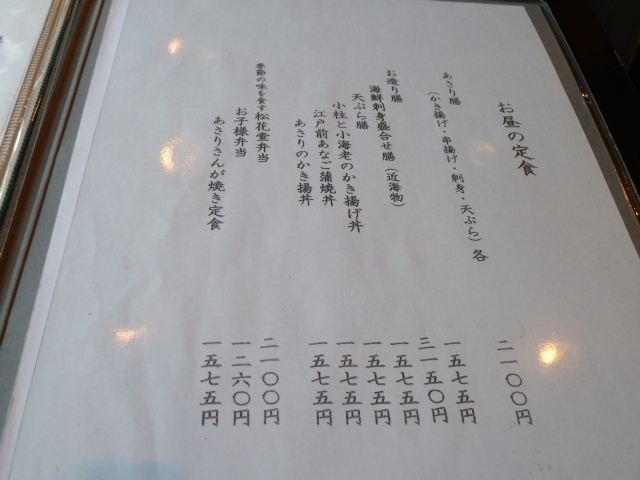 お昼の定食
あさり膳
(かき揚げ・串揚げ・刺身・天ぷら)各
二一〇〇円
お造り膳
一五七五円
海鮮刺身盛合せ膳(近海物)
三一五〇円
天ぷら膳
一五七五円
小柱と小海老のかき揚げ丼
一五七五円
江戸前あなご蒲焼丼
一五七五円
あさりのかき揚丼
一五七五円
季節の味を食す松花堂弁当
二一〇〇円
お子様弁当
一二六〇円
あさりさんが焼き定食
一五七五円